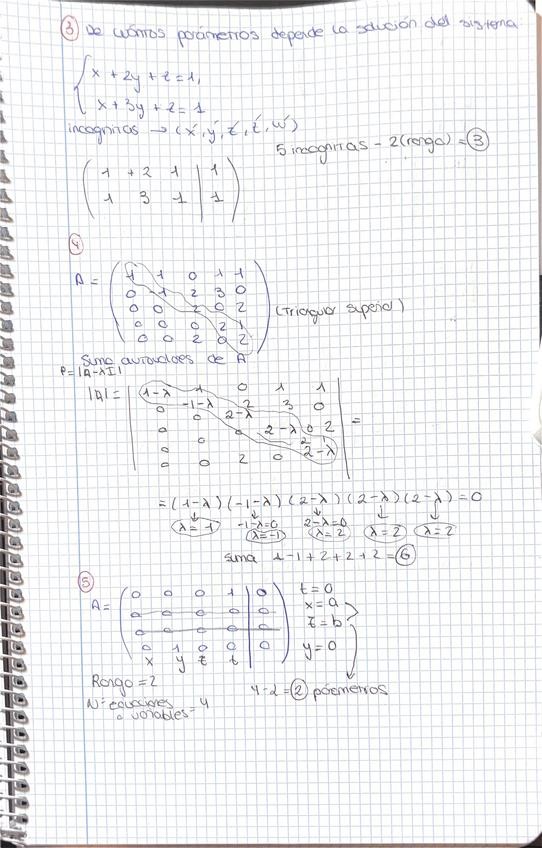 3 De cuántos parámetros depende la solución del sistema
x + 2y + z = 1,
x + 3y + z = 1
incognitas → (x, y, z, t, w)
5 incognitas - 2 (rango) = 3
1 + 2 1 | 1
1 3 1 | 1
4
A = 1 1 0 1 1
0 -1 2 3 0
0 0 2 0 2
0 0 0 2 1
0 0 2 0 2
(Triangular superior)
Suma autovalores de A
P = |A-λI|
|A| = 1-λ 1 0 1 1
0 -1-λ 2 3 0
0 0 2-λ 0 2
0 0 0 2-λ 1
0 0 2 0 2-λ
=
= (1-λ) (-1-λ) (2-λ) (2-λ) (2-λ) = 0
λ = -1 -1-λ=0 2-λ=0 λ = 2 λ = 2
λ=-1 λ = 2
suma 1 - 1 + 2 + 2 + 2 = 6
5
A = 0 0 0 1 | 0
0 0 0 0 | 0
0 0 0 0 | 0
0 1 0 0 | 0
x y z t
t = 0
x = a
z = b
y = 0
Rango = 2
4 - 2 = 2 parámetros
Nº ecuaciones
o variables = 4